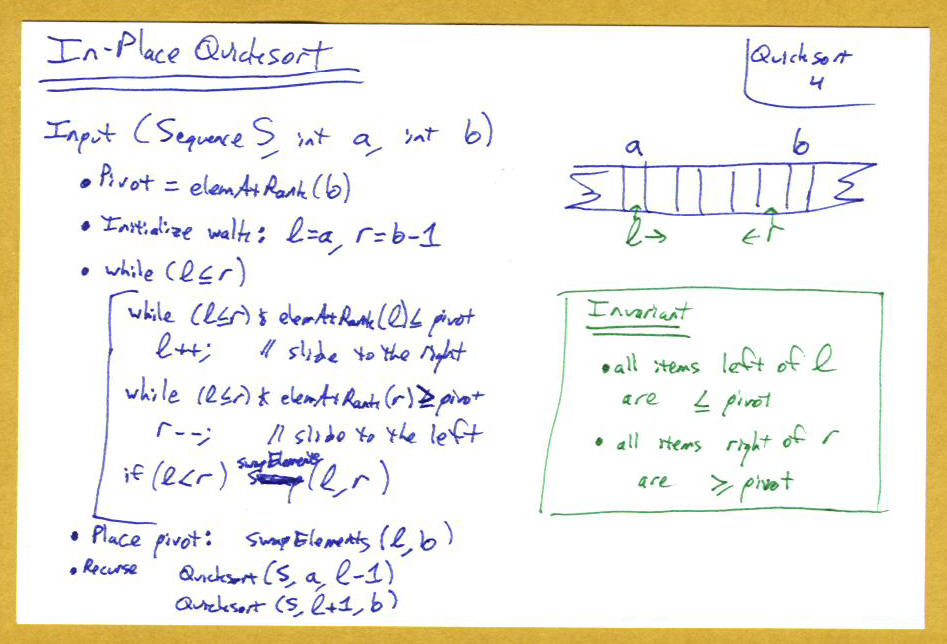 In-Place Quicksort
Quicksort
4
Input (Sequence S, int a, int b)
• Pivot = elemAtRank(b)
• Initialize walk: l=a, r=b-1
• while (l≤r)
while (l≤r) & elemAtRank(l)≤ pivot
l++; // slide to the right
while (l≤r) & elemAtRank(r)≥pivot
r--; // slide to the left
if (l<r) swapElements (l,r)
• Place pivot: swapElements (l,b)
• Recurse Quicksort(S, a, l-1)
Quicksort (S, l+1, b)
a b
l→ ←r
Invariant
• all items left of l
are ≤ pivot
• all items right of r
are ≥ pivot